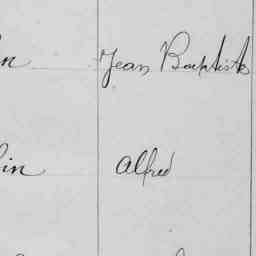 n Jean Baptiste
in Alfred